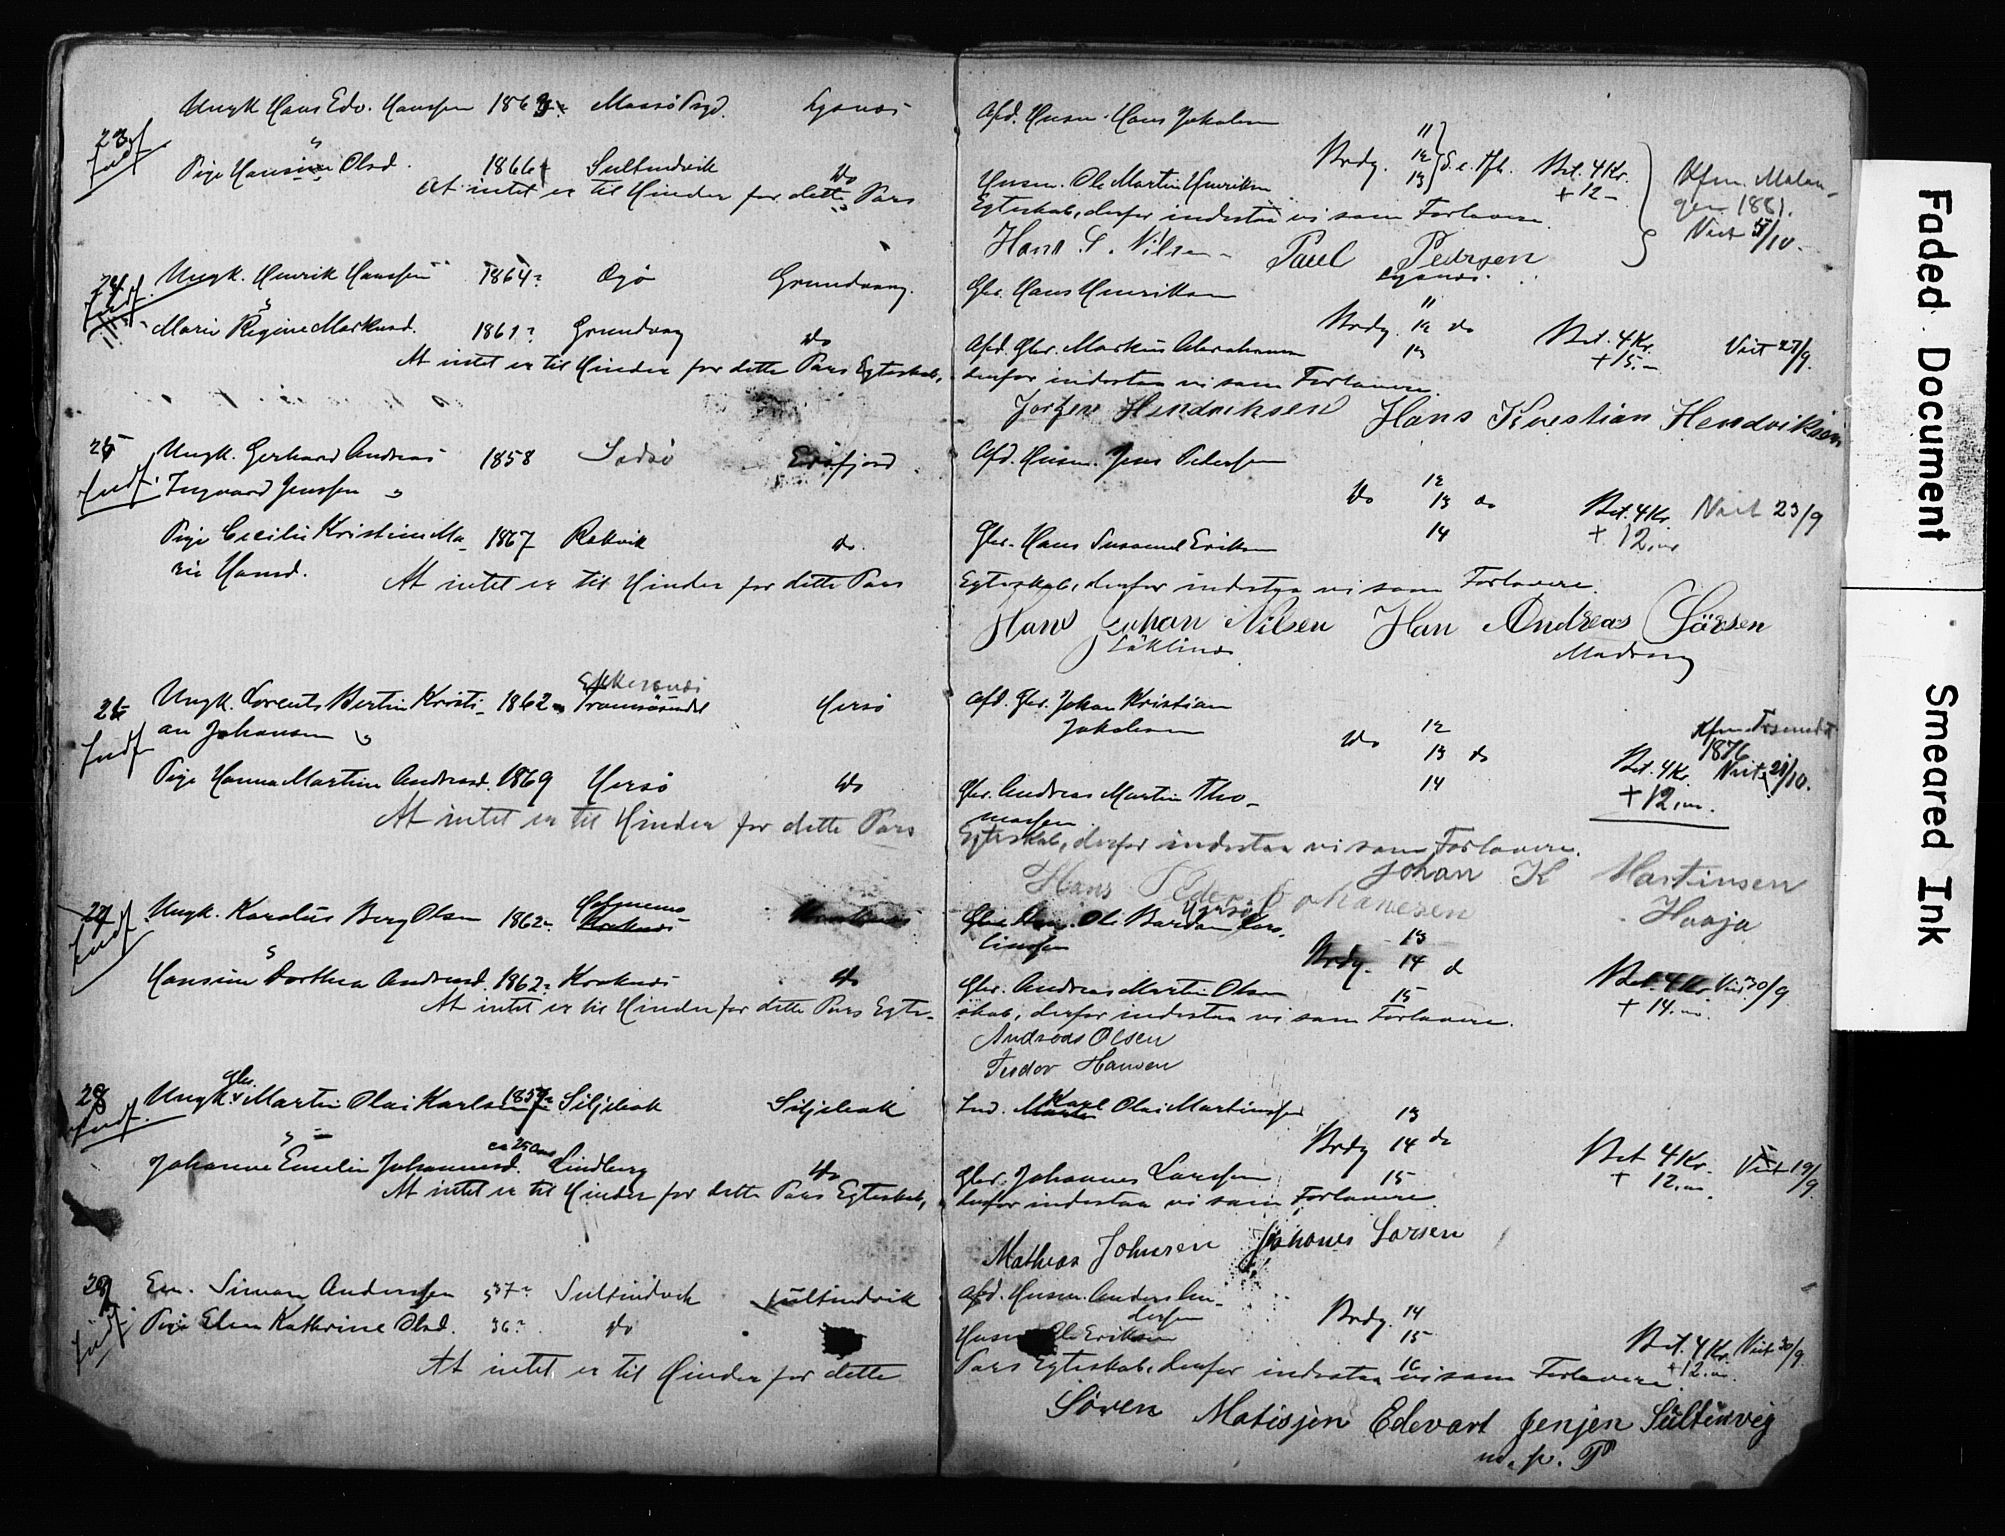 23
Indf.
Ungk Hans Edv. Hanssen 1863 Maasø Prgd. Lysnæs
Pige Hansine Olsd. 1866 Sultindvik do
At intet er til Hinder for dette Pars
Afd. Husm. Hans Jakobsen
Brdg. 11 12 13 S. e. Trf. Bet. 4 Kr. + 12 -
Husm. Ole Martin Henriksen
Kfm. Malan-
gen 1881.
Viet 5/10.
Egteskab, derfor indestaa vi som Forlovere
Hans S. Nilsen Paul Pedersen
Lysnæs.
24
Indf.
Ungk. Henrik Hanssen 1864 Grundvaag.
Marie Regine Markusd. 1861 Grundvaag do
At intet er til Hinder for dette Pars Egteskab,
Gbr. Hans Henriksen
Brdg. 11 12 13 do Bet. 4 Kr. + 15.- Viet 27/9.
Afd. Gbr. Markus Abrahamsen
derfor indestaa vi som Forlovere
Jørgen Hendriksen Hans Krestian Hendriksen
25
Indf.
Ungk. Gerhard Andreas 1858 Eidsfjord
Ingvard Jenssen
Pige Cecilie Kristine Ma- 1867 Rakvik do
rie Hansd.
At intet er til Hinder for dette Pars
Afd. Husm. Jens Pedersen
do 12 13 14 do Bet. 4 Kr. + 12.- Viet 23/9
Gbr. Hans Eriksen
Egteskab, derfor indestaa vi som Forlovere.
Hans Johan Nilsen Han Andreas Larsen
26
Indf.
Ungk. Lorents Bertin Kristi- 1862 Tromsøsundet Hersø
an Johansen
Pige Hanna Martine Andreasd. 1869 Hersø do
At intet er til Hinder for dette Pars
Afd. Gbr. Johan Kristian
Jakobsen
do 12 13 14 do
Kfm. Trsundet
1876
Bet. 4 Kr. Viet 21/10.
+ 12.-
Gbr. Andreas Martin Tho-
massen
Egteskab, derfor indestaa vi som Forlovere.
Johan K Martinsen
Hans Peder Johanesen
27
Indf.
Ungk. Karolus Berg Olsen 1862
Hansine Dorthea Andreasd. 1862 Kraknæs do
At intet er til Hinder for dette Pars Egte-
Brdg. 13 14 15 do Bet. 4 Kr. Viet 30/9
+ 14.-
Gbr. Andreas Martin Olsen
skab, derfor indestaa vi som Forlovere.
Andreas Olsen
Teodor Hansen
28
Indf.
Ungk. Gbr. Martin Olai Karlsen 1857 Siljebak Siljebak
Johanne Emelie Johannesd. ca 25 Aar Lindberg do
At intet er til Hinder for dette Pars Egteskab,
Ind. Karl Olai Martinssen
Brdg 13 14 15 do Bet 4 Kr. Viet 19/9
+ 12.-
Gbr. Johannes Larssen
derfor indestaa vi som Forlovere
Mathias Johnsen Johanes Larsen
29
Indf.
Em. Simon Anderssen 37 Sultindvik Sultindvik
Pige Elen Kathrine Olsd. 36 do
At intet er til Hinder for dette
Afd. Husm. Anders An-
derssen
Brdg. 14 15 16
Husm. Ole Eriksen Bet. 4 Kr. Viet 30/9
+ 12.-
Pars Egteskab, derfor indestaa vi som Forlovere.
Søren Matisjen Edevart Jenjen Sultinvig
m. p. P
Faded Document
Smeared Ink